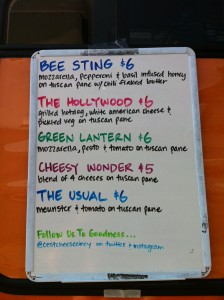 BEE STING $6
mozzarella, pepperoni & basil infused honey
on tuscan pane w/ chili flaked butter
THE HOLLYWOOD $6
grilled hotdog, white american cheese &
pickled veg on tuscan pane
GREEN LANTERN $6
mozzarella, pesto & tomato on tuscan pane
CHEESY WONDER $5
blend of 4 cheeses on tuscan pane
THE USUAL $6
meunster & tomato on tuscan pane
Follow Us To Goodness...
@cestcheesecincy on twitter & instagram